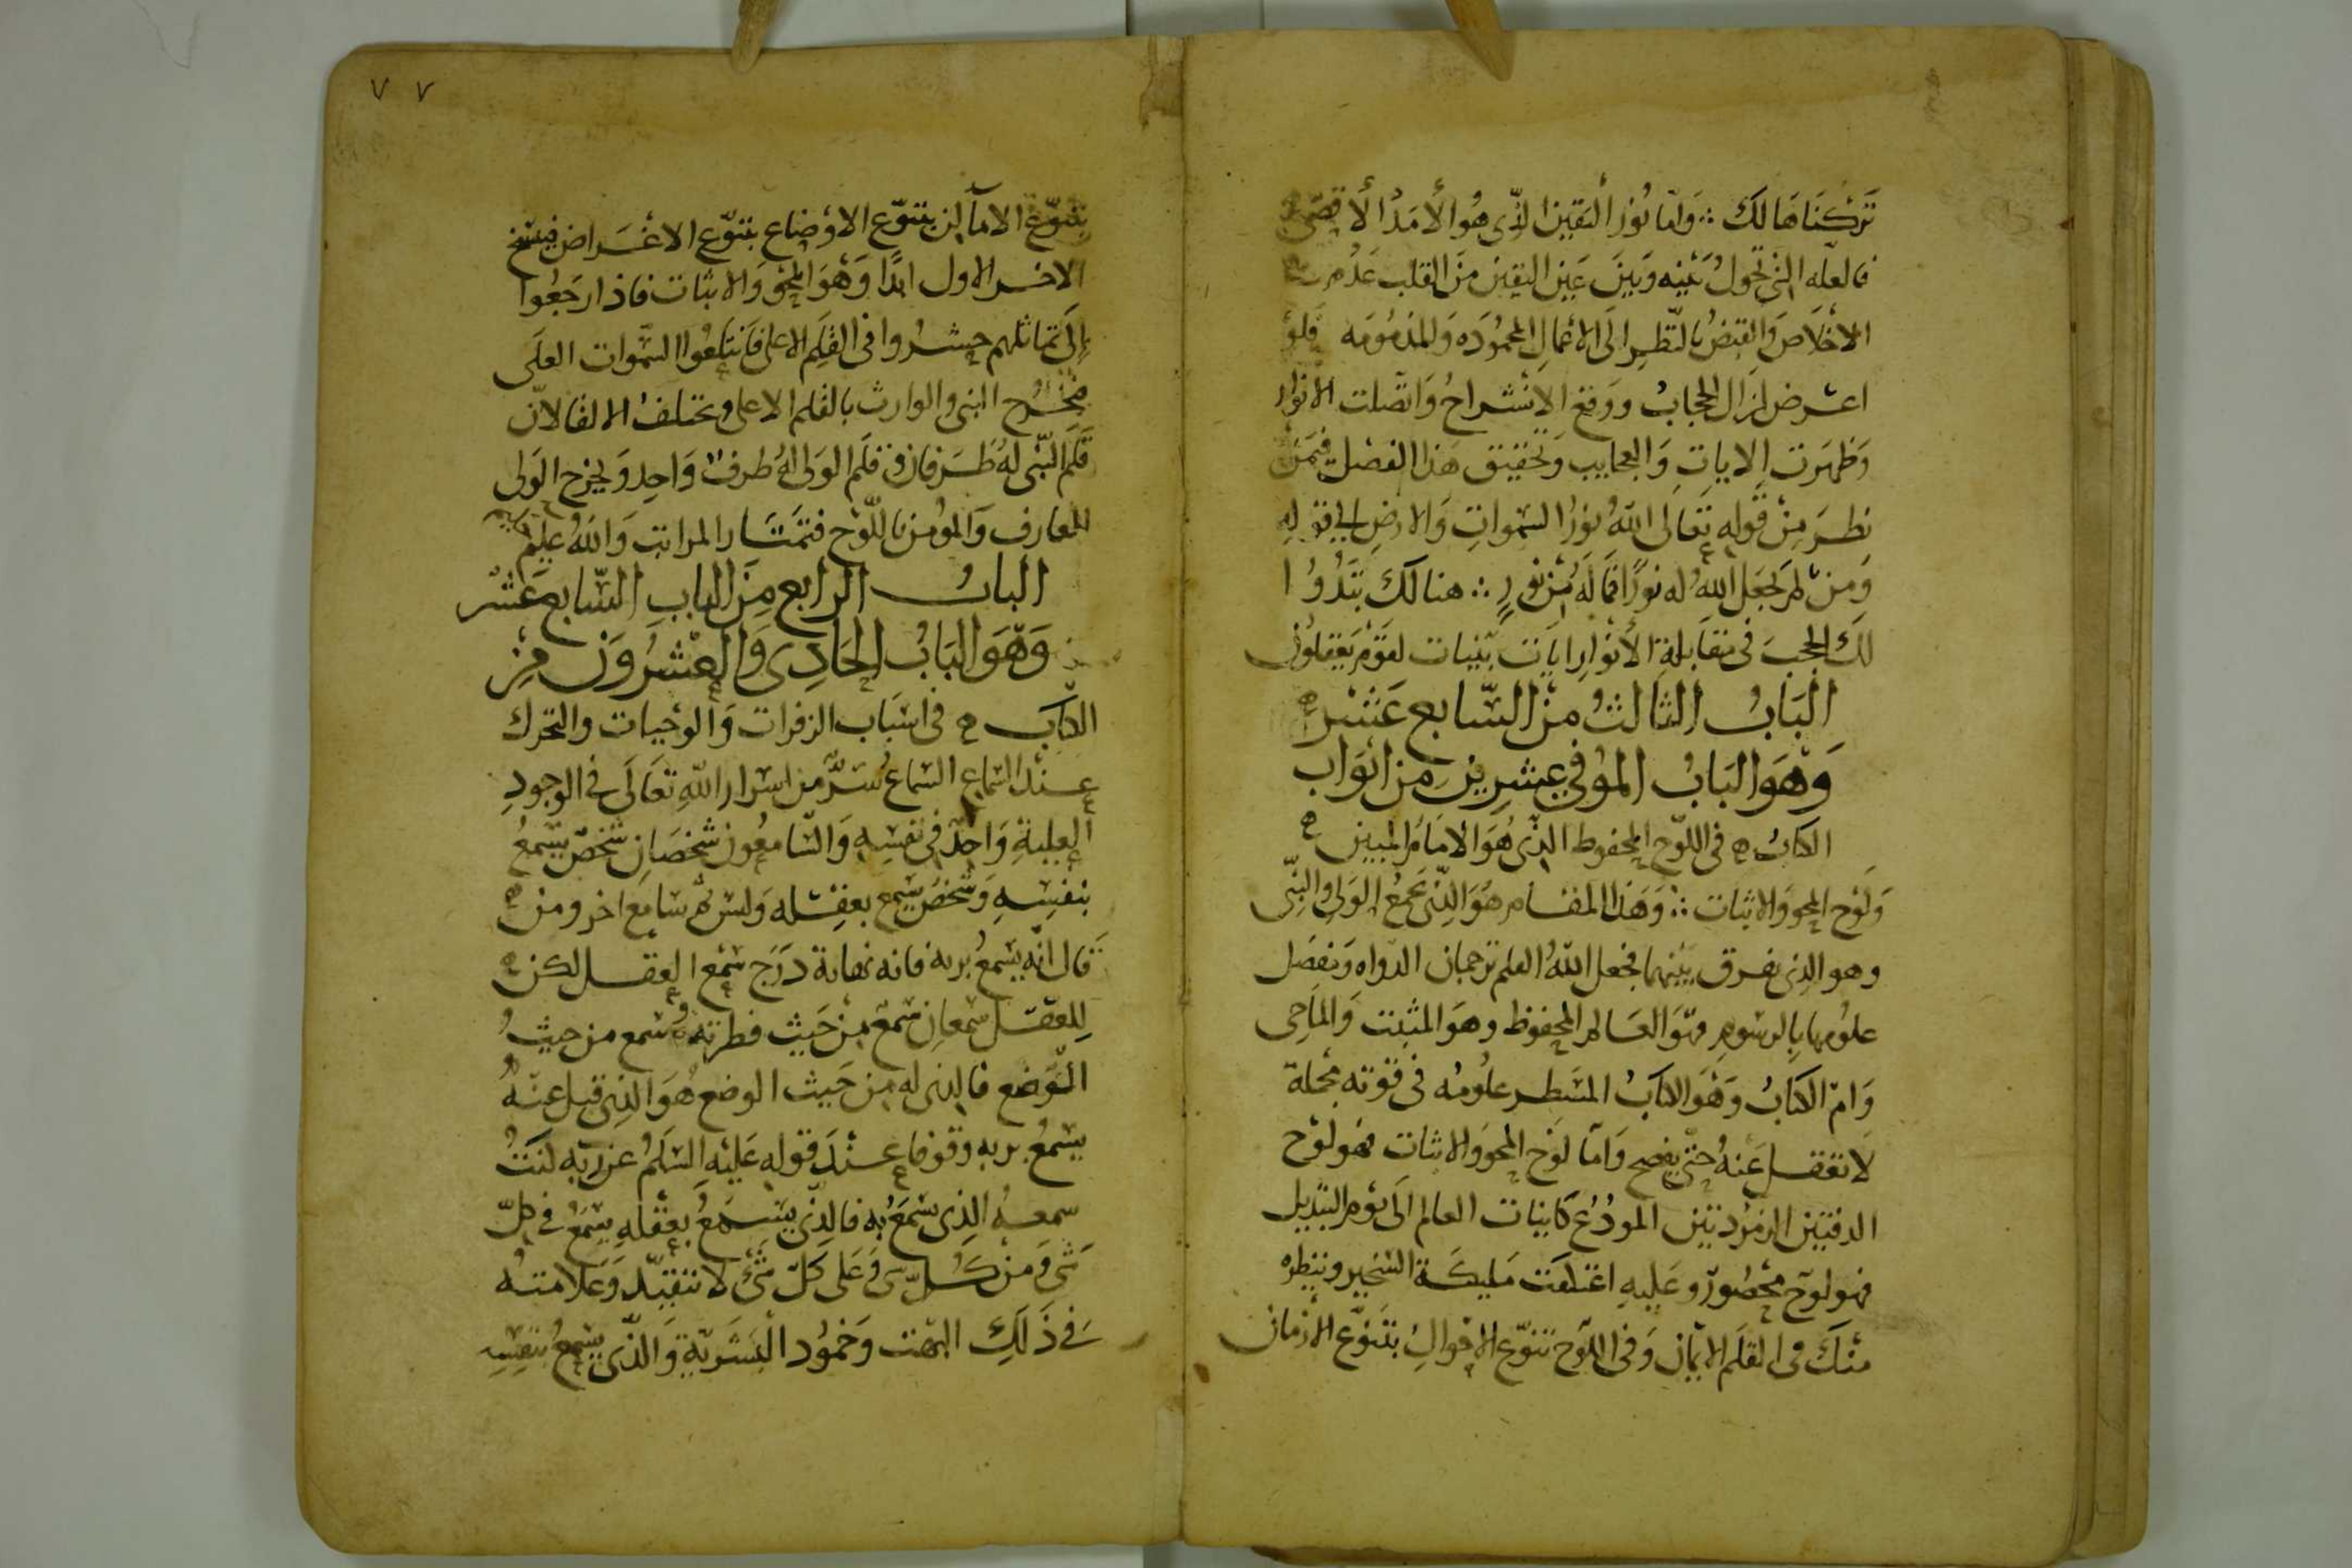 تركناها لك ∴ وأما نور اليقين الذي هو الأمد الأقصى
فالعلة التي تحول بينه وبين عين اليقين من القلب عدم
الأخلاص والقبض بالنظر الى الأعمال المحمودة والمذمومة فلو
اعترض لزال الحجاب ووقع الانشراح واتصلت الأنوار
وظهرت الايات والعجايب وتحقيق هذا الفصل فيمن
نظر من قوله تعالى الله نور السموات والارض الى قوله
ومن لم يجعل الله له نورا فما له من نور ∴ هنالك تبدوا
لك الحجب في مقابلة الأنوار ايات بينات لقوم يعقلون
الباب الثالث من السابع عشر
وهو الباب الموفي عشرين من ابواب
الكتاب ه في اللوح المحفوظ الذي هو الامام المبين
ولوح المحو والاثبات ∴ وهذا المقام هو الذي يجمع الولي والنبي
وهو الذي يفرق بينهما فجعل الله العلم ترجمان الدواه وتفصل
علومها بالرسوم فهو العالم المحفوظ وهو المثبت والماحي
وام الكتاب وهو الكتاب المسطر علومه في قوته مجملة
لا تعقل عنه حتى يفصح واما لوح المحو والاثبات فهو لوح
الدفتين الزمردتين المودع كاينات العالم الى يوم التبديل
فهو لوح محصور وعليه اعتكفت مليكة التسخير ونظيره
منك في القلم الايمان وفي اللوح تنوع الاحوال بتنوع الأزمان
٧ ٧
بتنوع الاماكن بتنوع الاوضاع بتنوع الاغراض فينسخ
الاخر الاول ابدا وهو المحو والاثبات فاذا رجعوا
الى تماثلهم حشروا في القلم الاعلى فابتلعوا السموات العلى
فيخرج النبي والوارث بالقلم الاعلى وتختلف الالقا لان
قلم النبي له طرفان وقلم الولي له طرف واحد ويخرج الولي
للمعارف والمؤمن باللوح فتمتار المراتب والله عليم
الباب الرابع من الباب السابع عشر
وهو الباب الحادي والعشرون من
الكتاب ه في اسباب الزفرات والوجبات والتحرك
عند السماع السماع سر من اسرار الله تعالى في الوجود
العلية واحد في نفسه والسامعون شخصان شخص يسمع
بنفسه وشخص يسمع بعقله وليس ثم سامع اخر ومن
قال انه يسمع بربه فانه نهاية درج سمع العقل لكن
للعقل سمعان سمع من حيث فطرته وسمع من حيث
الوضع فالذي له من حيث الوضع هو الذي قيل عنه
يسمع بربه وقوفا عند قوله عليه السلم عن ربه كنت
سمعه الذي يسمع به فالذي يسمع بعقله يسمع في كل
شي ومن كل شي وعلى كل شي لا تتقيد وعلامته
في ذلك البهت وخمود البشرية والذي يسمع بنفسه